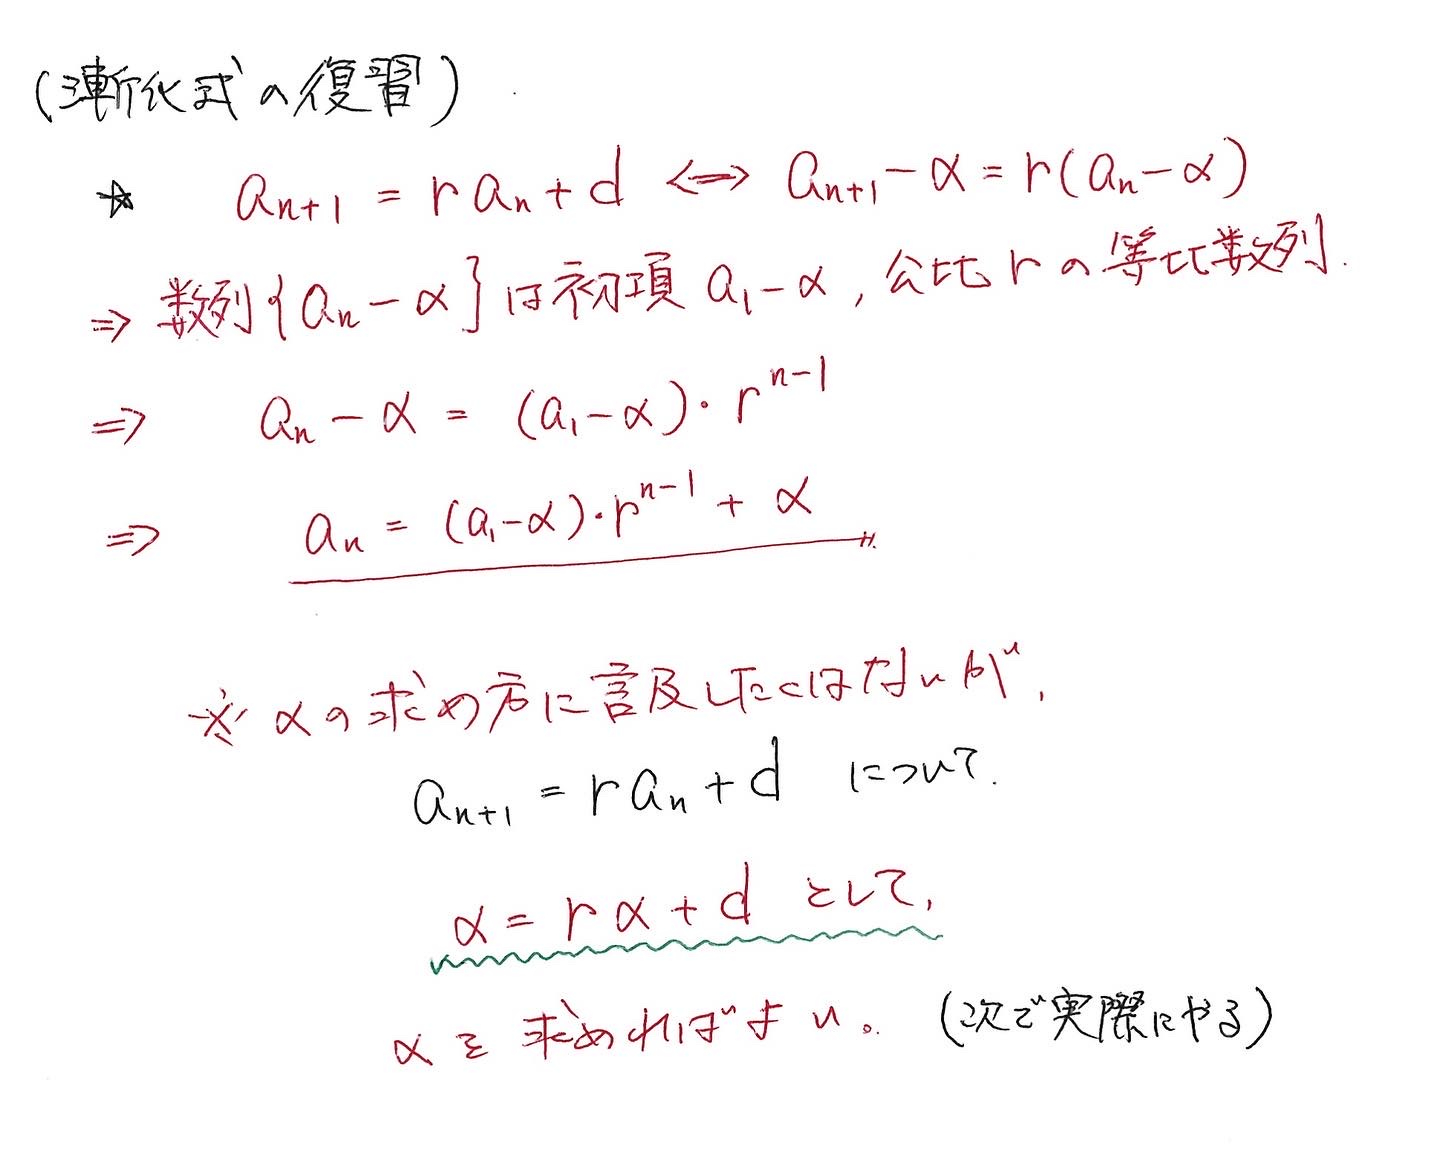 (漸化式の復習)
☆ aₙ₊₁ = r aₙ + d ⇔ aₙ₊₁ - α = r(aₙ - α)
⇒ 数列{aₙ - α}は初項 a₁ - α, 公比 r の等比数列.
⇒ aₙ - α = (a₁ - α)・rⁿ⁻¹
⇒ aₙ = (a₁ - α)・rⁿ⁻¹ + α
※ αの求め方に言及したくはないが,
aₙ₊₁ = r aₙ + d について.
α = r α + d として,
αを求めればよい。 (次で実際にやる)